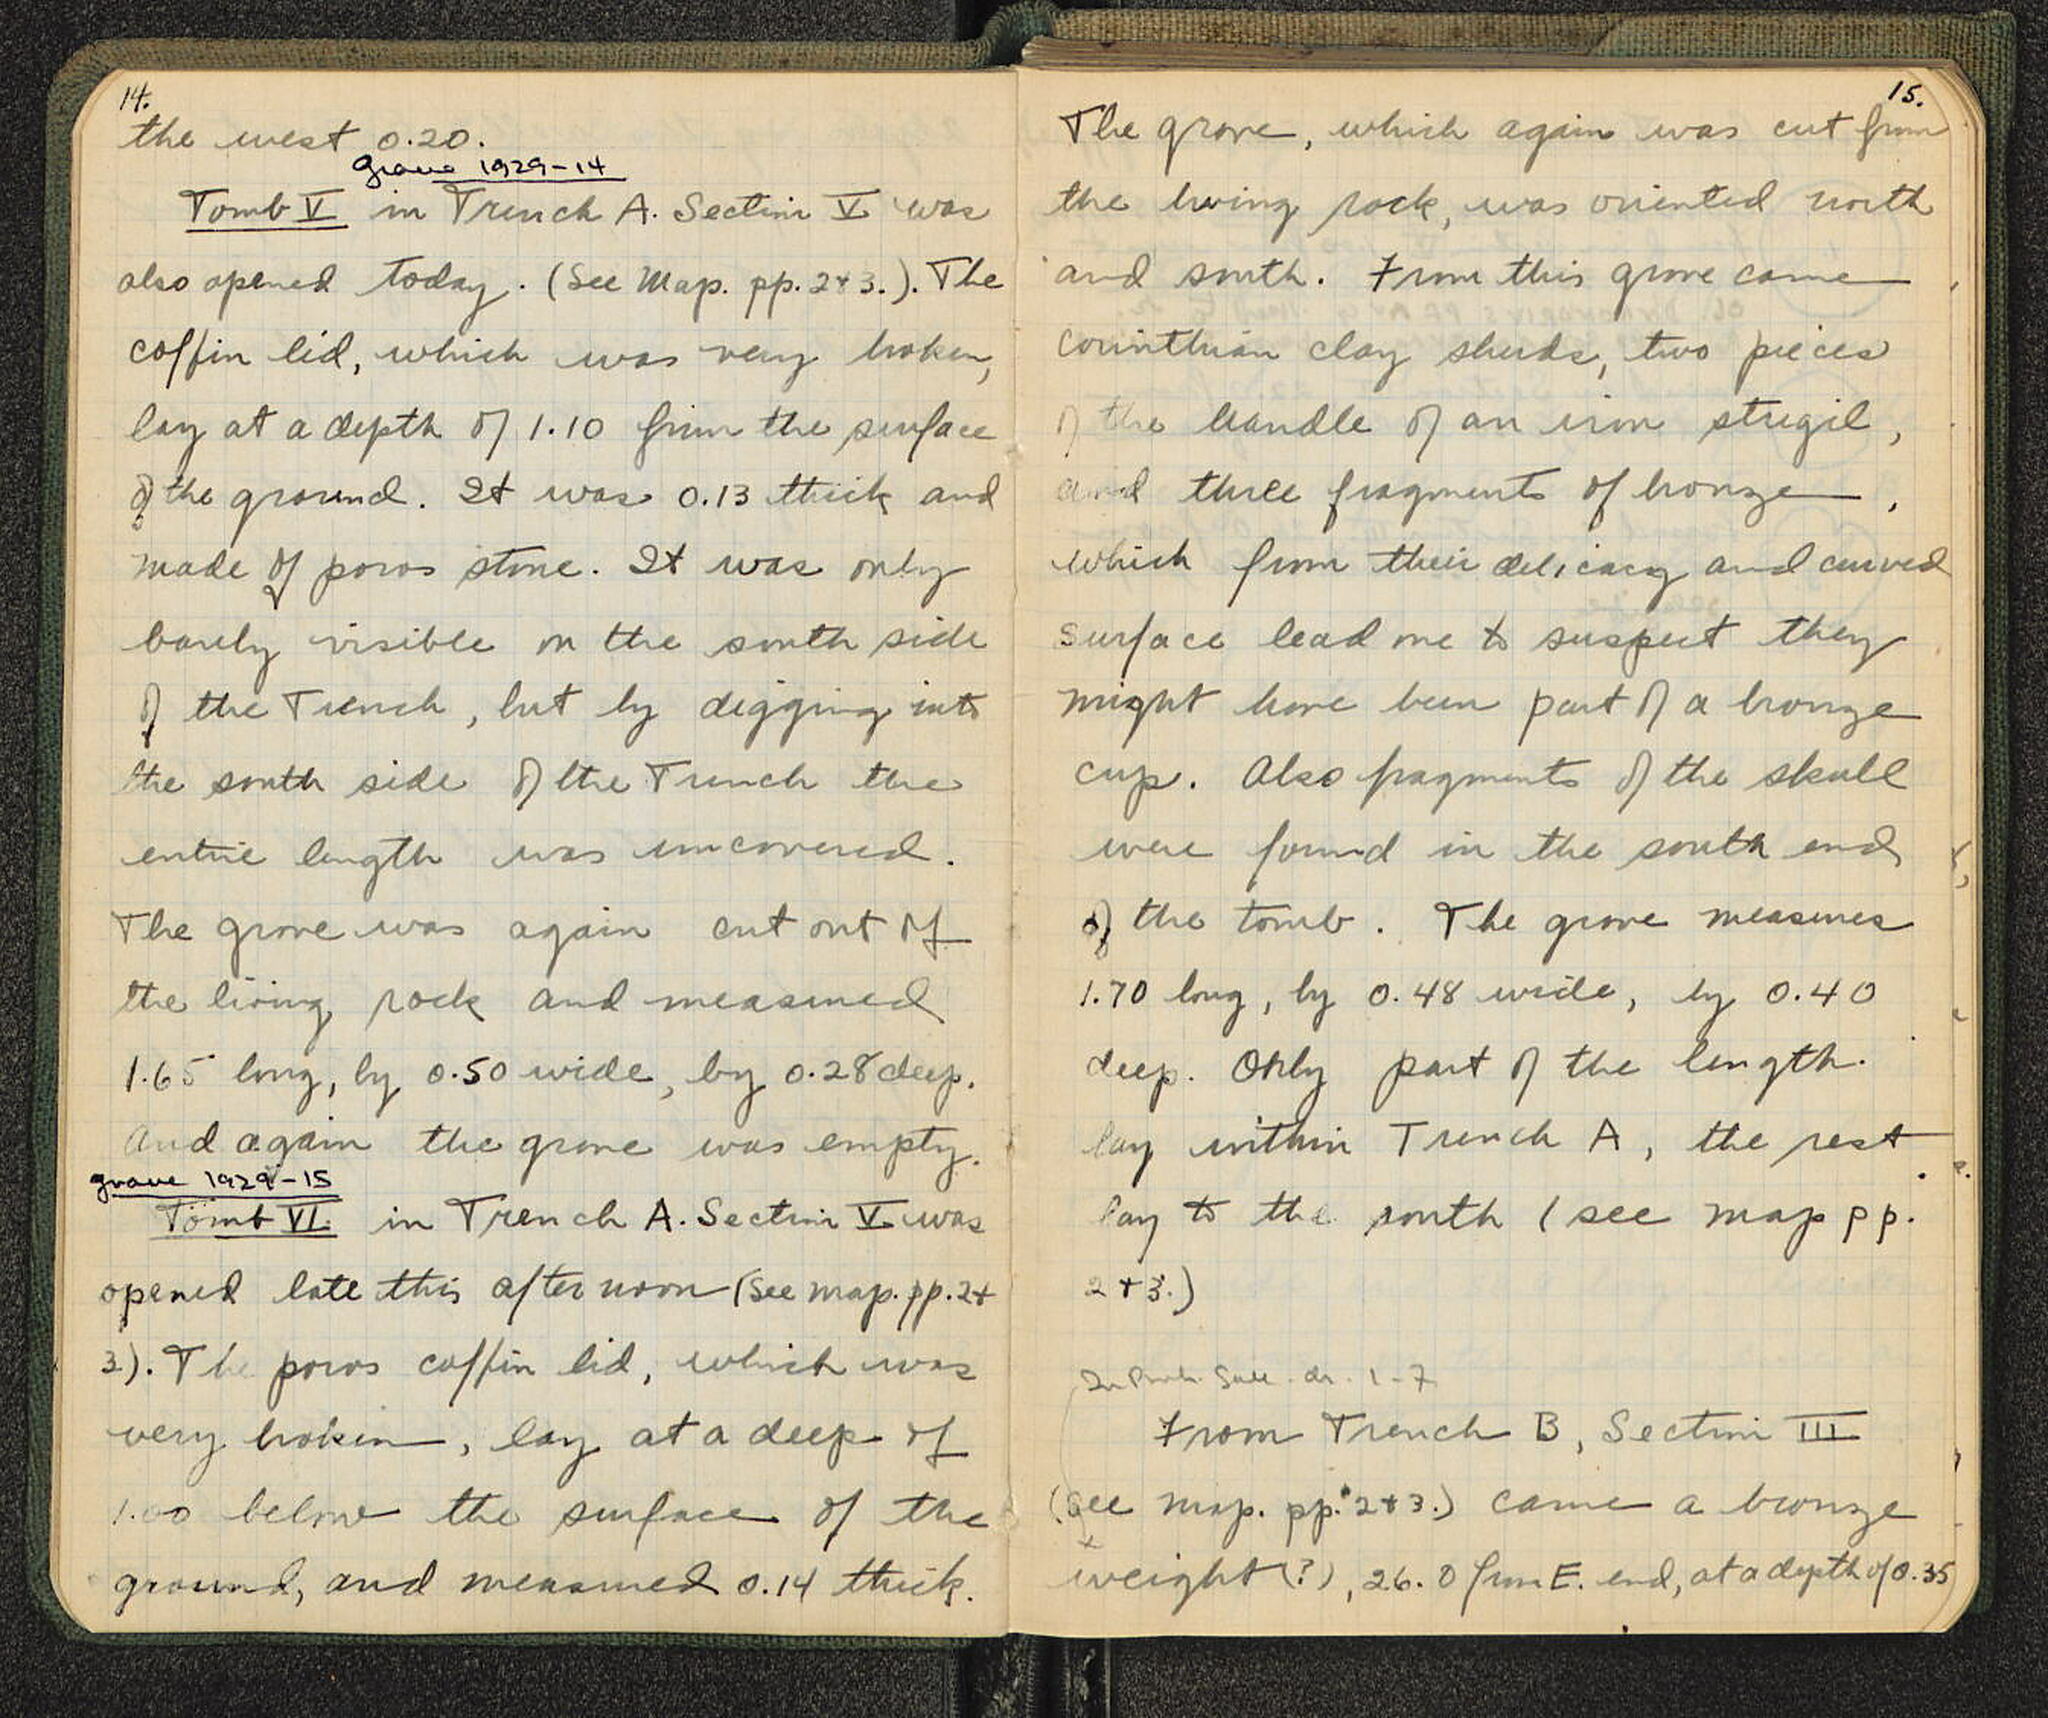 14.
the west 0.20.
grave 1929-14
Tomb V in Trench A. Section V was
also opened today. (See Map. pp. 2+3.). The
coffin lid, which was very broken,
lay at a depth of 1.10 from the surface
of the ground. It was 0.13 thick and
made of poros stone. It was only
barely visible on the south side
of the Trench, but by digging into
the south side of the Trench the
entire length was uncovered.
The grave was again cut out of
the living rock and measured
1.65 long, by 0.50 wide, by 0.28 deep.
And again the grave was empty.
grave 1929-15
Tomb VI. in Trench A. Section V was
opened late this afternoon (See map. pp. 2+
3). The poros coffin lid, which was
very broken, lay at a deep of
1.00 below the surface of the
ground, and measured 0.14 thick.
15.
The grave, which again was cut from
the living rock, was oriented north
and south. From this grave came
Corinthian clay sherds, two pieces
of the handle of an iron strigil,
and three fragments of bronze,
which from their delicacy and curved
surface lead me to suspect they
might have been part of a bronze
cup. Also fragments of the skull
were found in the south end
of the tomb. The grave measures
1.70 long, by 0.48 wide, by 0.40
deep. Only part of the length
lay within Trench A, the rest
lay to the south (see map pp.
2+3.)
dr. 1-7
From Trench B, Section III
(See map. pp. 2+3.) came a bronze
weight (?), 26.0 from E. end, at a depth of 0.35